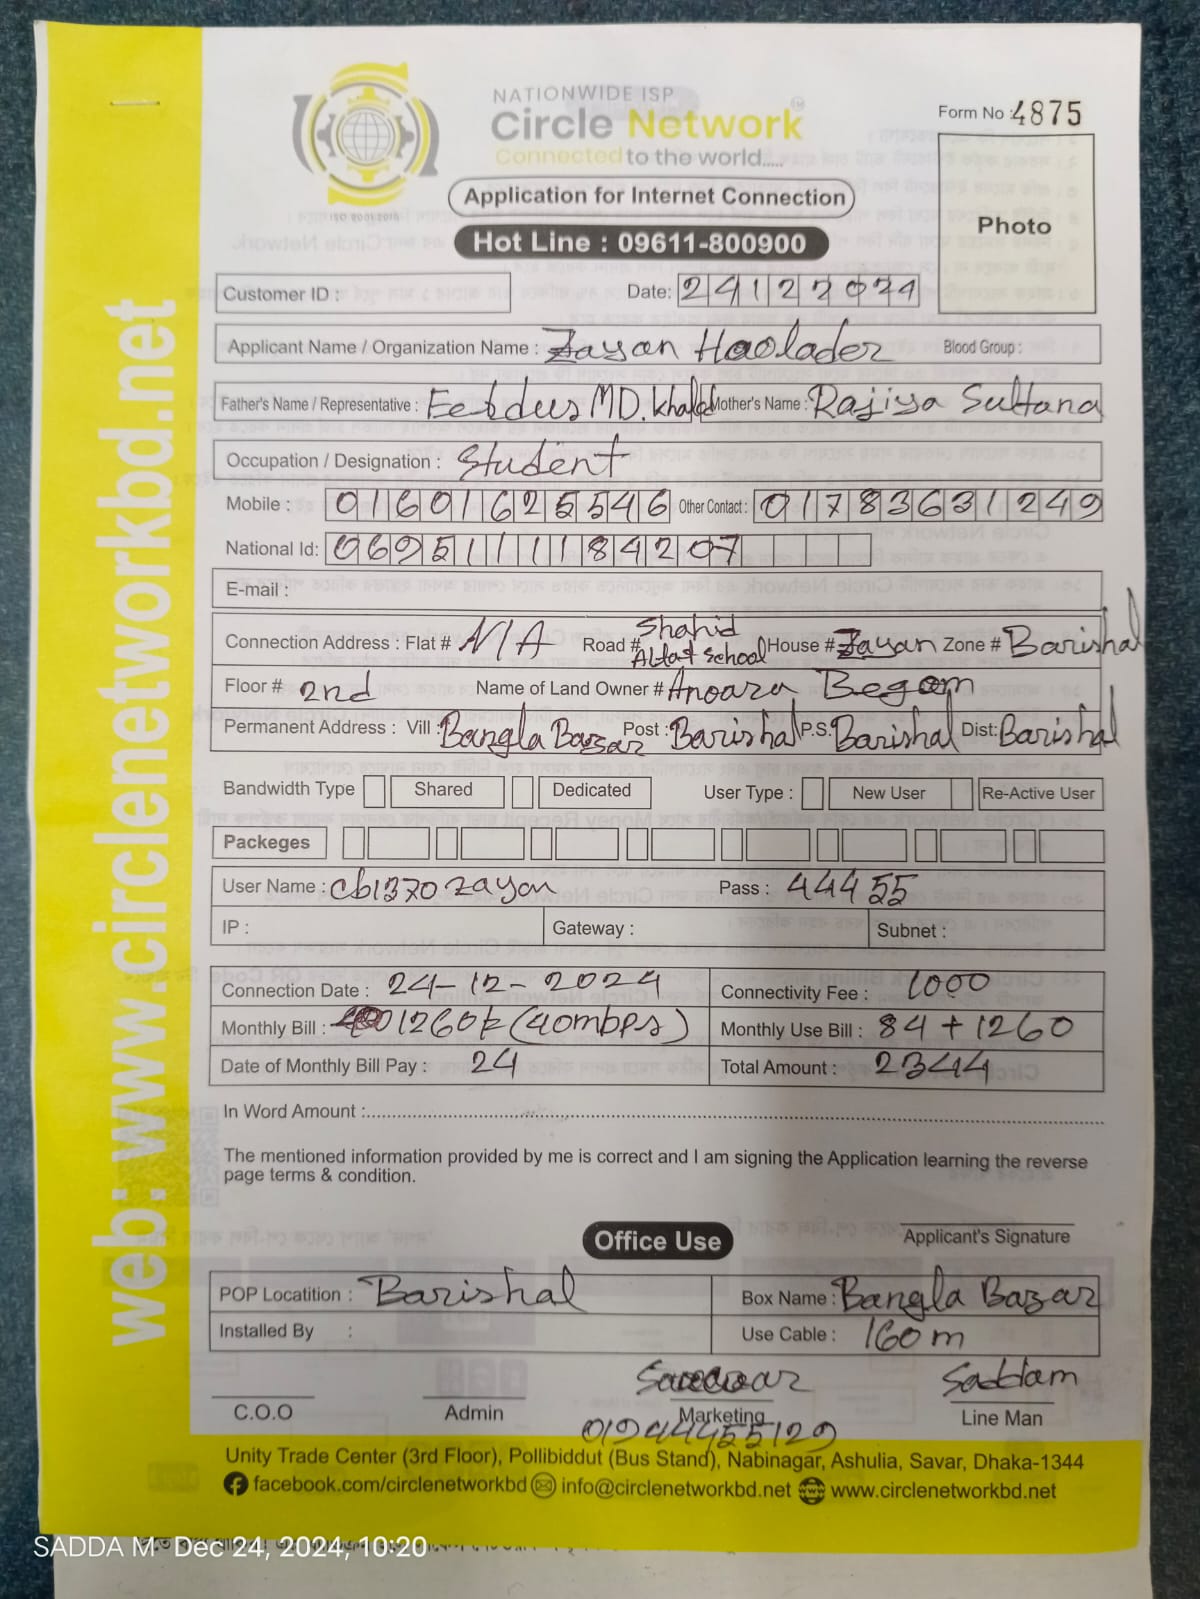 NATIONWIDE ISP
Circle Network
Connected to the world.....
ISO 9001:2015
Form No : 4875
Application for Internet Connection
Photo
Hot Line : 09611-800900
Customer ID :
Date: 24122024
Applicant Name / Organization Name : Zayan Haolader Blood Group :
Father's Name / Representative : Ferdus MD. Khaled Mother's Name : Rajiya Sultana
Occupation / Designation : Student
Mobile : 01601625546 Other Contact : 01783631249
National Id: 0695111184207
E-mail :
Connection Address : Flat # N/A Road # Shahid Altaf School House # Zayan Zone # Barishal
Floor # 2nd Name of Land Owner # Anoara Begom
Permanent Address : Vill : Bangla Bazar Post : Barishal P.S: Barishal Dist: Barishal
Bandwidth Type Shared Dedicated User Type : New User Re-Active User
Packeges
User Name : cb1370zayan Pass : 44455
IP : Gateway : Subnet :
Connection Date : 24-12-2024 Connectivity Fee : 1000
Monthly Bill : 1260 (40mbps) Monthly Use Bill : 84 + 1260
Date of Monthly Bill Pay : 24 Total Amount : 2344
In Word Amount :
The mentioned information provided by me is correct and I am signing the Application learning the reverse
page terms & condition.
Applicant's Signature
Office Use
POP Locatition : Barishal Box Name : Bangla Bazar
Installed By : Use Cable : 160m
Saddam
C.O.O Admin Marketing Line Man
01944455129
Unity Trade Center (3rd Floor), Pollibiddut (Bus Stand), Nabinagar, Ashulia, Savar, Dhaka-1344
facebook.com/circlenetworkbd info@circlenetworkbd.net www.circlenetworkbd.net
web: www.circlenetworkbd.net
SADDA M Dec 24, 2024, 10:20